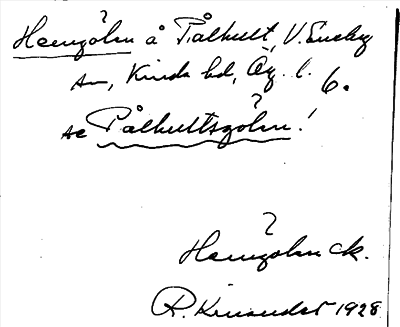 Hemgöln å Pålhult, V. Eneby
sn, Kinda hd, Ög. l. 6.
se Pålhultsgöln!
Hemgöln ck.
R. Kinander 1928